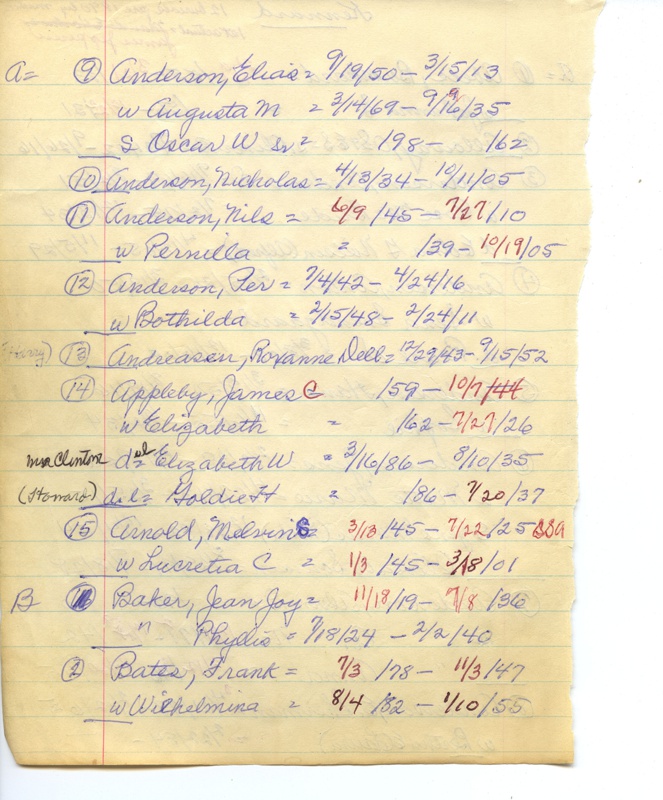 A= 9 Anderson, Elias = 9/19/50 - 3/15/13
w Augusta M = 3/14/69 - 9/16/35
S Oscar W Sr = 198- 162
10 Anderson, Nicholas = 4/13/34 - 10/11/05
11 Anderson, Nils = 6/9/45 - 7/27/10
w Pernilla = /39 - 10/19/05
12 Anderson, Per = 7/4/42 - 4/24/16
w Bothilda = 2/15/48 - 2/24/11
13 Andreasen, Roxanne Dell = 12/29/43 - 9/15/52
14 Appleby, James C 159 - 10/7/44
w Elizabeth = /62 - 7/27/26
Mrs Clinton d il = Elizabeth W = 3/16/86 - 8/10/35
(Howard) d.il = Goldie H = /86 - 7/20/37
15 Arnold, Melvin S = 3/13/45 - 7/22/25 SSA
w Lucretia C = 1/3/45 - 3/18/01
B 1 Baker, Jean Joy = 11/18/19 - 7/8/36
" Phyllis = 7/18/24 - 2/2/40
2 Bates, Frank = 7/3/78 - 11/3/47
w Wilhelmina = 8/4/82 - 1/10/55